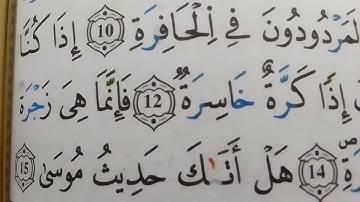 لَمَرْدُودُونَ فِي ٱلْحَافِرَةِ ⑩ إِذَا كُنَّا
إِذًا كَرَّةٌ خَاسِرَةٌ ⑫ فَإِنَّمَا هِيَ زَجْرَةٌ
⑭ هَلْ أَتَىٰكَ حَدِيثُ مُوسَىٰ ⑮